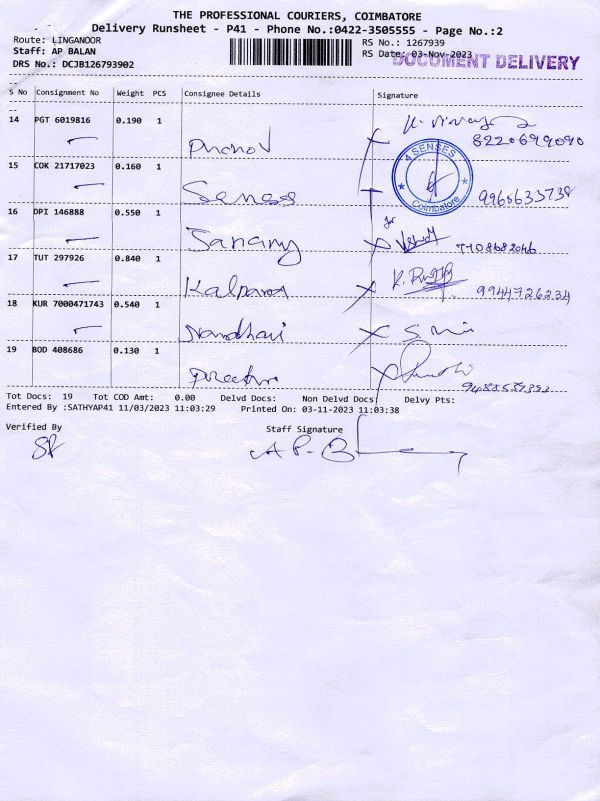 THE PROFESSIONAL COURIERS, COIMBATORE
Delivery Runsheet - P41 - Phone No.:0422-3505555 - Page No.:2
Route: LINGANOOR
RS No.: 1267939
Staff: AP BALAN
RS Date: 03-Nov-2023
DOCUMENT DELIVERY
DRS No.: DCJB126793902
S No Consignment No Weight PCS Consignee Details Signature
14 PGT 6019816 0.190 1
8220699090
4 SENSES
Coimbatore
15 COK 21717023 0.160 1
9965633738
16 DPI 146888 0.550 1
for
7708682046
17 TUT 297926 0.840 1
Kalpana
9944726234
18 KUR 7000471743 0.540 1
Nandhini
19 BOD 408686 0.130 1
Tot Docs: 19 Tot COD Amt: 0.00 Delvd Docs: Non Delvd Docs: Delvy Pts:
Entered By :SATHYAP41 11/03/2023 11:03:29 Printed On: 03-11-2023 11:03:38
Verified By Staff Signature